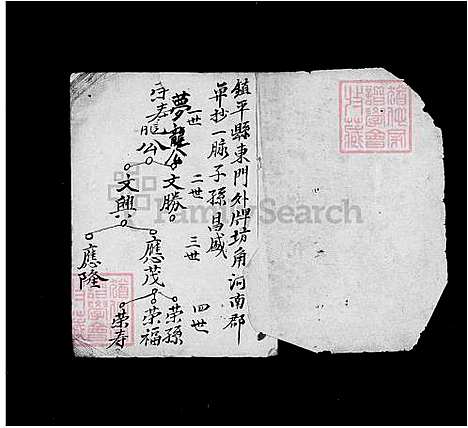 鎮平縣東門外牌坊角河南郡
弟抄一脉子孫昌盛
一世
二世
三世
四世
夢龍公
寿龍公
文勝
文興
應茂
應隆
荣孫
荣福
荣寿
FamilySearch